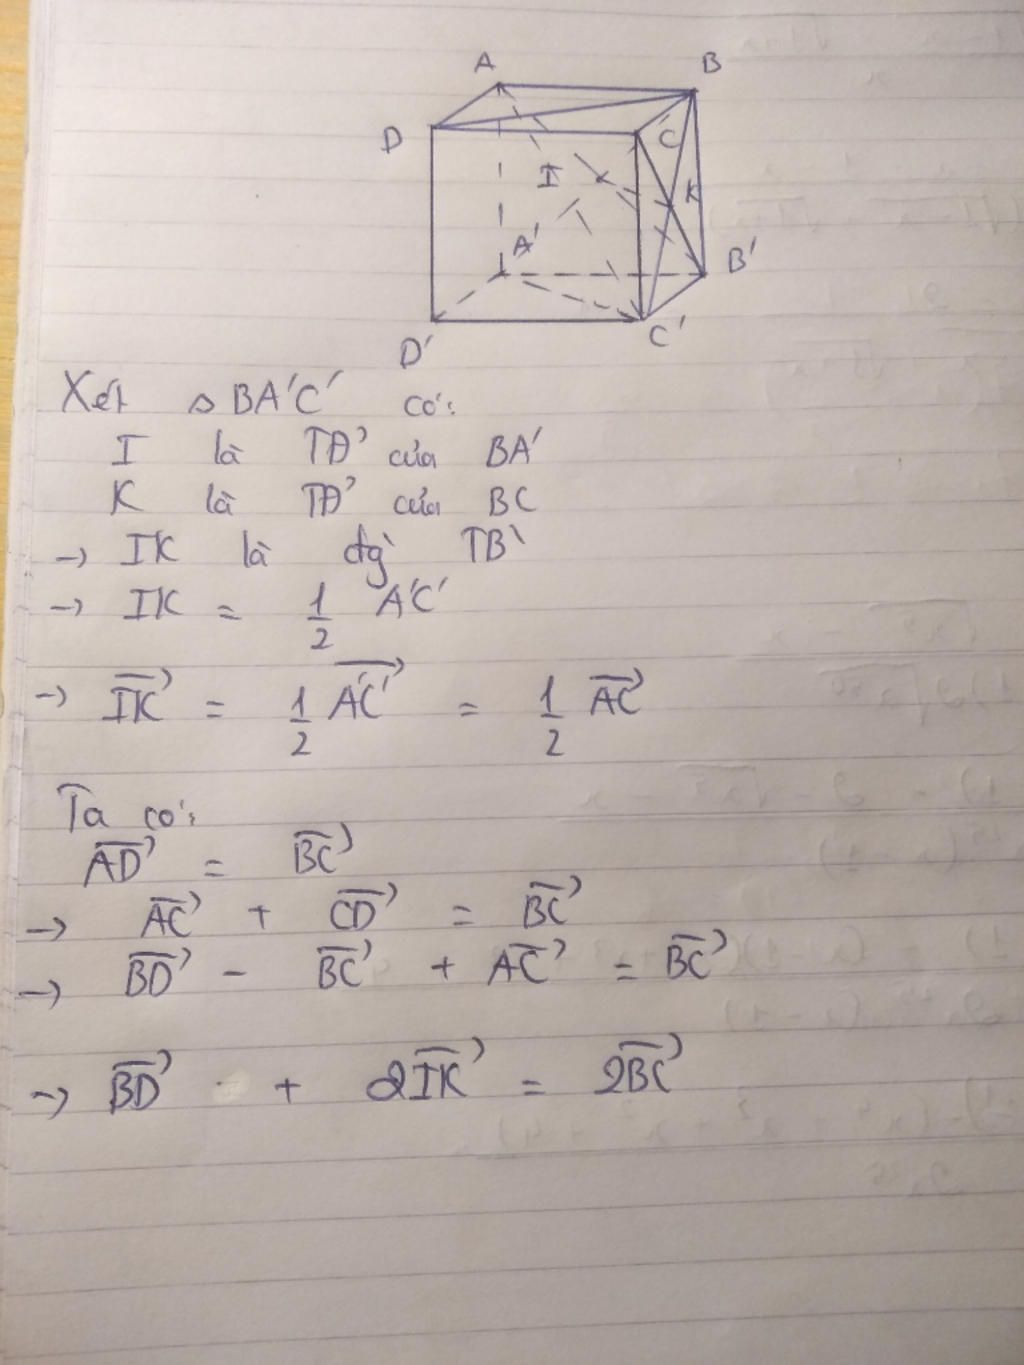 A B
D C
I K
A' B'
D' C'
Xét △ BA'C' có:
I là TĐ' của BA'
K là TĐ' của BC
→ IK là đg̀ TB̀
→ IK = 1/2 A'C'
→ IK⃗ = 1/2 A'C'⃗ = 1/2 AC⃗
Ta có:
AD⃗ = BC⃗
→ AC⃗ + CD⃗ = BC⃗
→ BD⃗ - BC⃗ + AC⃗ = BC⃗
→ BD⃗ + 2IK⃗ = 2BC⃗